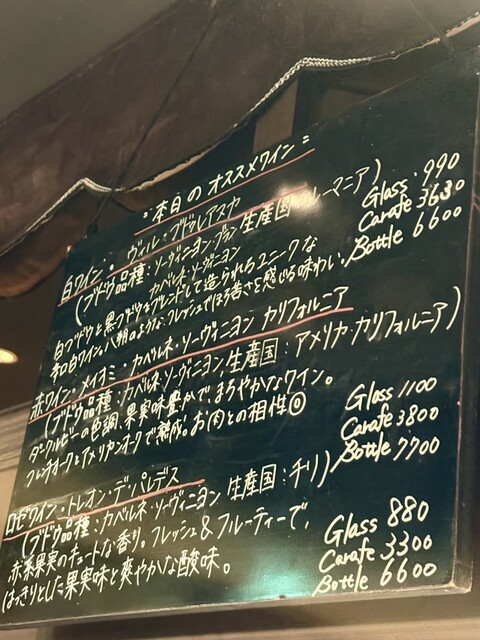 本日のオススメワイン
白ワイン・ヴル・ブドゥレアスカ
(ブドウ品種:ソーヴィニヨン・ブラン 生産国:ルーマニア)
カベルネ・ソーヴィニヨン
白ブドウと黒ブドウをブレンドして造られるユニークな
和白ワイン。八朔のような、フレッシュでほろ苦さを感じる味わい。
Glass・990
Carafe 3630
Bottle 6600
赤ワイン・メイオミ・カベルネ・ソーヴィニヨン カリフォルニア
(ブドウ品種:カベルネ・ソーヴィニヨン 生産国:アメリカ・カリフォルニア)
ダークルビーの色調、果実味豊かで、まろやかなワイン。
フレンチオークとアメリカンオークで熟成。お肉との相性◎
Glass 1100
Carafe 3800
Bottle 7700
ロゼワイン・トレオン・デ・パレデス
(ブドウ品種:カベルネ・ソーヴィニヨン 生産国:チリ)
赤系果実のチュートな香り。フレッシュ&フルーティーで、
はっきりとした果実味と爽やかな酸味。
Glass 880
Carafe 3300
Bottle 6600